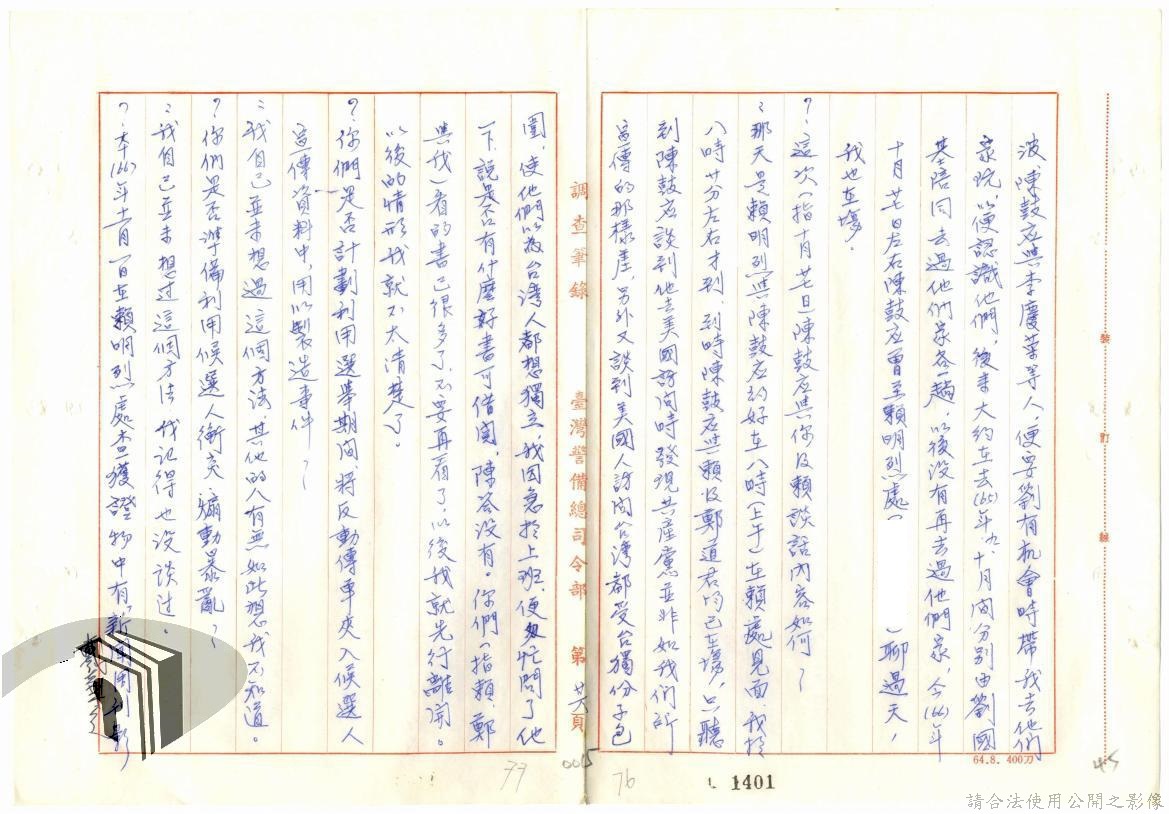 波、陳鼓應與李慶榮等人，便要劉有机會時帶我去他們
家玩，以便認識他們，後來大約在去(65)年九、十月間分別由劉國
基陪同去過他們家各一趟，以後沒有再去過他們家，今(66)年
十月廿七日左右陳鼓应曾至賴明烈處（　　）聊過天，
我也在場。
？：這次（指十月廿七日）陳鼓应與你及賴談話內容如何？
：那天是賴明烈與陳鼓应約好在八時（上午）在賴處見面，我於
八時廿分左右才到，到時陳鼓应與賴及鄭道君均已在場，只聽
到陳鼓应談到他去美國訪問時發現共產黨並非如我們所
宣傳的那樣差，另外又談到美國人訪問台灣都受台獨份子包
圍，使他們以為台灣人都想獨立，我因急於上班，便匆忙問了他
一下，說是否有什麼好書可借閱，陳答沒有。你們（指賴、鄭
與我）看的書已很多了，不要再看了，以後我就先行離開。
以後的情形我就不太清楚了。
？：你們是否計劃利用選舉期間，將反動傳單夾入候選人
宣傳資料中，用以製造事件？
：我自己並未想過這個方法，其他的人有無如此想我不知道。
？：你們是否準備利用候選人衝突，煽動暴亂？
：我自己並未想過這個方法，我記得也沒談过。
？：本(66)年十一月一日在賴明烈處查獲證物中有「新聞周刊影
調查筆錄
臺灣警備總司令部
第廿六頁
裝
訂
線
64.8. 400刀
45
1401
76
77
請合法使用公開之影像